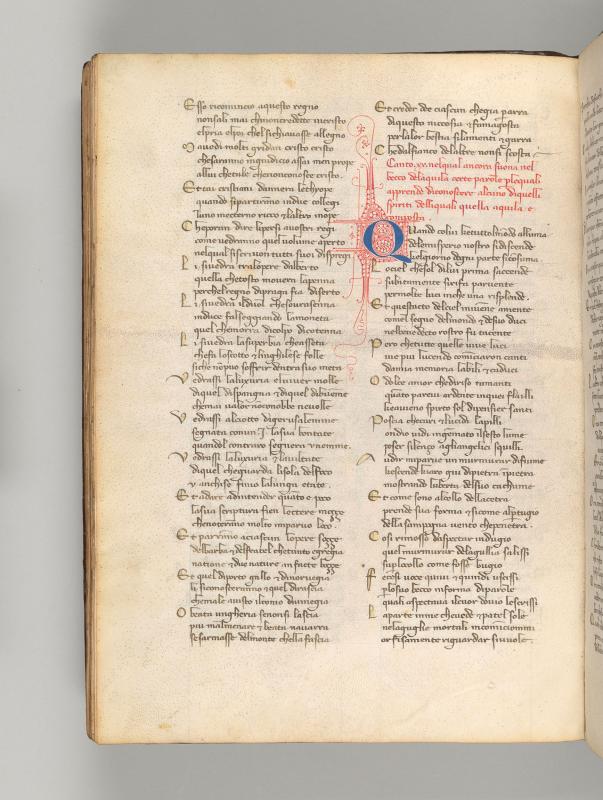 Esso ricomincio aquesto regno
nonsali mai chinoncredette incristo
elpria elpoi chel sichiavasse allegno
Mavedi molti gridan cristo cristo
chesaranno ingiudicio assai men prope
allui chetale chenonconosce cristo.
Etai cristiani dannera lethiope
quando sipartiranno indue collegi
luno inecterno ricco & laltro inope
Cheporan dire lipersi avostri regi
come vedranno quel volume aperto
nelqual siscrivon tutti suoi dispregi
Li sivedra tralopere dalberto
quella chetosto movera lapenna
perchelregno dipraga fia diserto
Li sivedra ilduol chesovrasenna
induce falseggiando lamoneta
quel chemorra dicolpo dicotenna
Li sivedra lasuperbia cheasseta
chefa loscotto & linghilese folle
siche nonpuo soffrir dentra sua meta
Vedrassi laluxuria elviver molle
diquel dispangna & diquel dibueme
chemai valor nonconobbe nevolle
Vedrassi alciotto digerusalemme
segnata conun .I. lasua bontate
quandol contraro segnera unemme.
Vedrassi lavaritia & laviltate
diquel cheguarda lisola delfoco
v anchise finio lalunga etate.
Et adare adintender quanto e poco
lasua scriptura fien lectere mozze
chenoteranno molto inparvo loco
Et parranno aciascun lopere sozze
delbarba & delfratel chetanto egregia
natione & due nature an facte bozze
Et quel diportogallo & dinorvegia
li siconosceranno & quel dirascia
chemale avisto ilconio divinegia
O beata ungheria senonsi lascia
piu malmenare & beata navarra
sesarmasse delmonte chella fascia
Et creder dee ciascun chegia parra
diquesto niccosia & famagosta
perlalor bestia silamenti & garra
Chedalfianco delaltre nonsi scosta
Canto .xx. nelqual ancora suona nel
becco delaquila certe parole plequali
apprende diconoscere alcuno diquelli
spiriti delliquali quella aquila e
composta.
Quando colui chetuttolmondo alluma
delemisperio nostro sidiscende
chelgiorno dogni parte siconsuma
Lociel chesol dilui prima saccende
subitamente sirifa parvente
permolte luci inche una risplende.
Et questacto delciel mivenne amente
comel segno delmondo & desuo duci
nelbenedecto rostro fu tacente
Pero chetutte quelle vive luci
vie piu lucendo cominciaron canti
damia memoria labili & caduci
O dolce amor chediriso tamanti
quanto parevi ardente inquei flailli
ticaveano spirto sol dipensier santi
Poscia checari & lucidi lapilli
ondio vidi ingemmato ilsesto lume
poser silencio agliangelici squilli.
Audir miparve un murmurar difiume
chescende chiaro giu dipietra inpietra
mostrando luberta delsuo cacume
Et come sono alcollo dellacetra
prende sua forma & sicome alpertugio
della sampogna vento chepenetra.
Cosi rimosso daspectar indugio
quel murmurar delaguilia salissi
suplcollo come fosse bugio
Fecesi voce quivi & quindi uscissi
plosuo becco informa diparole
quali aspectava ilcuor dovio lescrissi
Laparte inme chevede & pate il sole
nelaguglie mortali incominciommi
or fisamente riguardar sivuole.